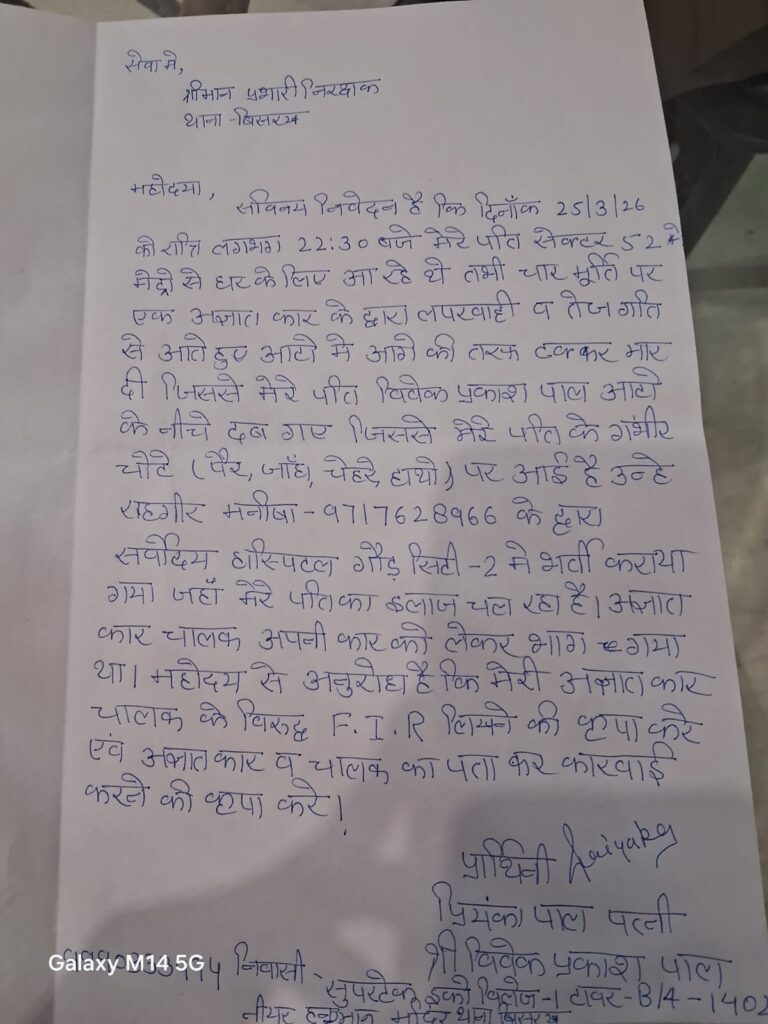 सेवा मे,
श्रीमान प्रभारी निरक्षक
थाना - बिसरख
महोदया,
सविनय निवेदन है कि दिनाँक 25/3/26
को रात्रि लगभग 22:30 बजे मेरे पति सेक्टर 52 मे
मेट्रो से घर के लिए आ रहे थे तभी चार मूर्ति पर
एक अज्ञात कार के द्वारा लपरवाही व तेज गति
से आते हुए आटो मे आगे की तरफ टक्कर मार
दी जिससे मेरे पति विवेक प्रकाश पाल आटो
के नीचे दब गए जिससे मेरे पति के गंभीर
चोटे (पैर, जाँघ, चेहरे, हाथो) पर आई है उन्हे
राहगीर मनीषा - 9717628966 के द्वारा
सर्वोदय हास्पिटल गौड़ सिटी -2 मे भर्ती कराया
गया जहाँ मेरे पति का इलाज चल रहा है। अज्ञात
कार चालक अपनी कार को लेकर भाग गया
था। महोदय से अनुरोध है कि मेरी अज्ञात कार
चालक के विरुद्ध F.I.R लिखने की कृपा करे
एवं अज्ञात कार व चालक का पता कर कारवाई
करने की कृपा करे।
प्रार्थिनी
प्रियंका पाल पत्नी
श्री विवेक प्रकाश पाल
निवासी - सुपरटेक इको विलेज -1 टावर - B/4 - 1402
नीयर हनुमान मंदिर थाना बिसरख
Galaxy M14 5G